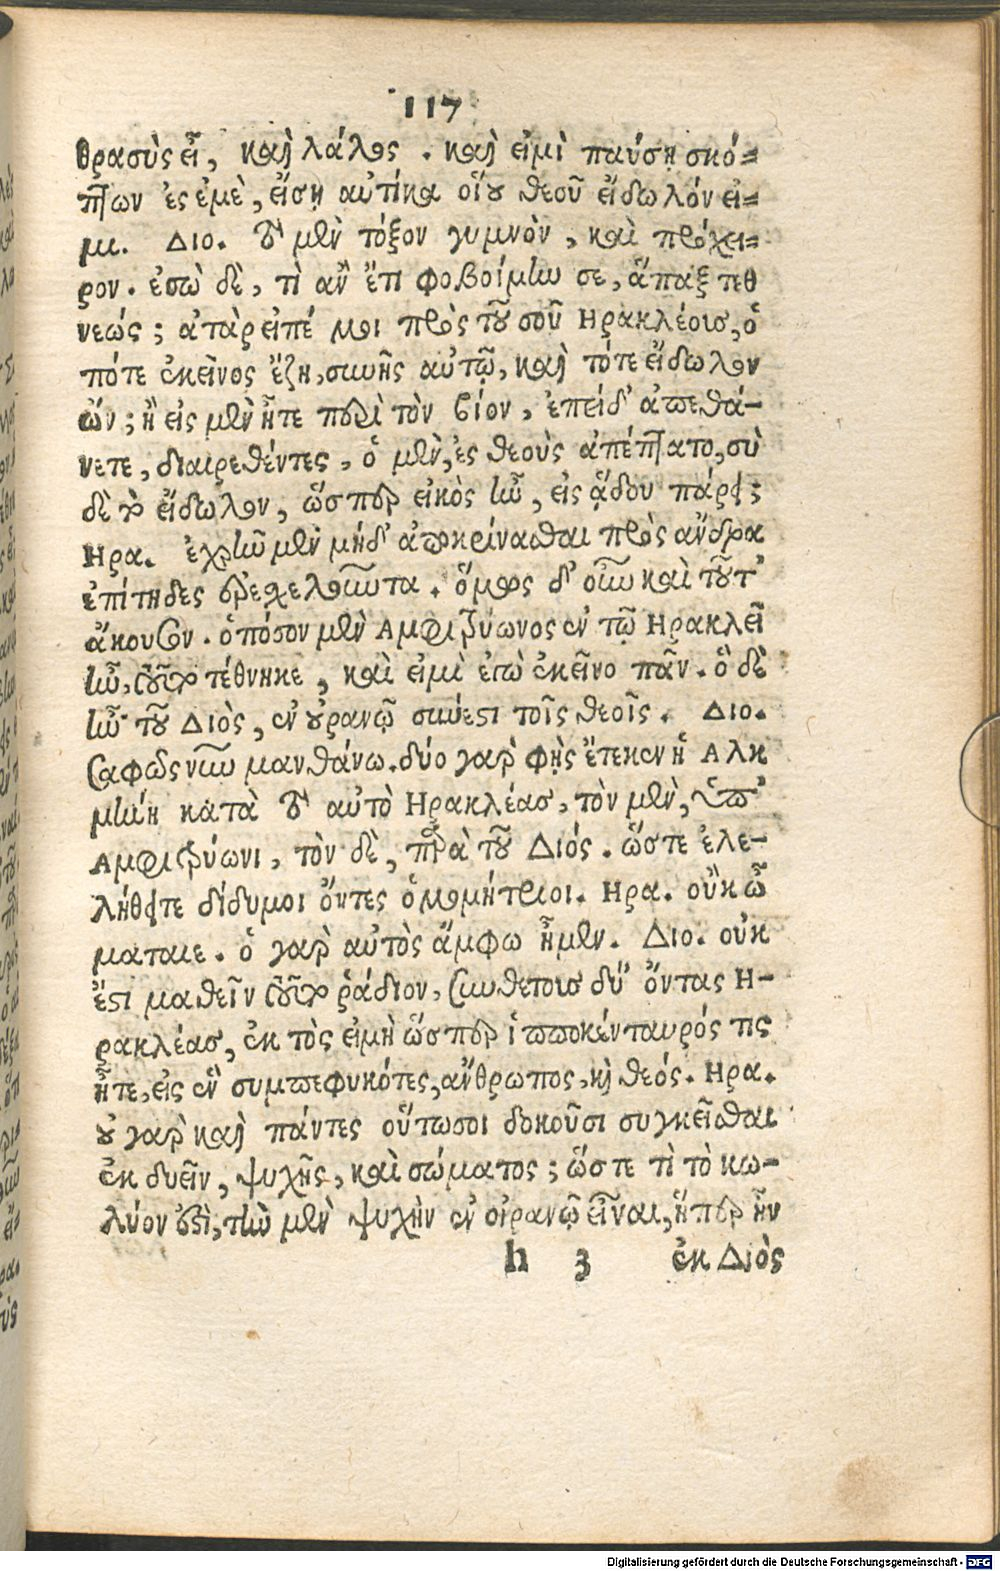 117
θρασὺς εἶ, καὶ λάλος. καὶ εἰμὶ παύσῃ σκό=
πτων ἐς ἐμὲ, εἴσῃ αὐτίκα οἵου θεοῦ εἴδωλόν εἰ=
μι. Διο. τὸ μὲν τόξον γυμνὸν, καὶ πρόχει=
ρον. ἐγὼ δὲ, τὶ ἂν ἔτι φοβοίμην σε, ἅπαξ τεθ
νεώς; ἀτὰρ εἰπέ μοι πρὸς τοῦ σοῦ Ηρακλέοισ, ὁ
πότε ἐκεῖνος ἔζη, συνῆς αὐτῷ, καὶ τότε εἴδωλον
ὤν; ἢ εἰς μὲν ἦτε παρὰ τὸν βίον, ἐπειδ' ἀπεθά-
νετε, διαιρεθέντες, ὁ μὲν, ἐς θεοὺς ἀπέπτατο, σὺ
δὲ τὸ εἴδωλον, ὥσπερ εἰκὸς ἦν, εἰς ᾅδου πάρει;
Ηρα. ἐχρῆν μὲν μήδ' ἀποκρίνασθαι πρὸς ἄνδρα
ἐπίτηδες ἐρεσχελοῦντα. ὅμως δ' οὖν καὶ τοῦτ'
ἄκουσον. ὁπόσον μὲν Αμφιτρύωνος ἐν τῷ Ηρακλεῖ
ἦν, τοῦτο τέθνηκε, καὶ εἰμὶ ἐγὼ ἐκεῖνο πᾶν. ὃ δὲ
ἦν τοῦ Διὸς, ἐν οὐρανῷ σύνεστι τοῖς θεοῖς. Διο.
σαφῶς νῦν μανθάνω. δύο γὰρ φῂς ἔτεκεν ἡ Αλκ
μήνη κατὰ τὸ αὐτὸ Ηρακλέας, τὸν μὲν, ὑπ'
Αμφιτρύωνι, τὸν δὲ, παρὰ τοῦ Διός. ὥστε ἐλε-
λήθειτε δίδυμοι ὄντες ὁμομήτριοι. Ηρα. οὔκ ὦ
μάταιε. ὁ γὰρ αὐτὸς ἄμφω ἦμεν. Διο. οὐκ
ἔστι μαθεῖν τοῦτο ῥάδιον, συνθετοισ δύ' ὄντας Η-
ρακλέας, ἐκ τὸς εἰμὴ ὥσπερ ἱπποκένταυρός τις
ἦτε, εἰς ἓν συμπεφυκότες, ἄνθρωπος, καὶ θεός. Ηρα.
οὐ γὰρ καὶ πάντες οὕτωσοι δοκοῦσι συγκεῖσθαι
ἐκ δυεῖν, ψυχῆς, καὶ σώματος; ὥστε τὶ τὸ κω-
λύον ἐστὶ, τὴν μὲν ψυχὴν ἐν οὐρανῷ εἶναι, ἥπερ ἦν
h 3 ἐκ Διὸς
Digitalisierung gefördert durch die Deutsche Forschungsgemeinschaft - DFG